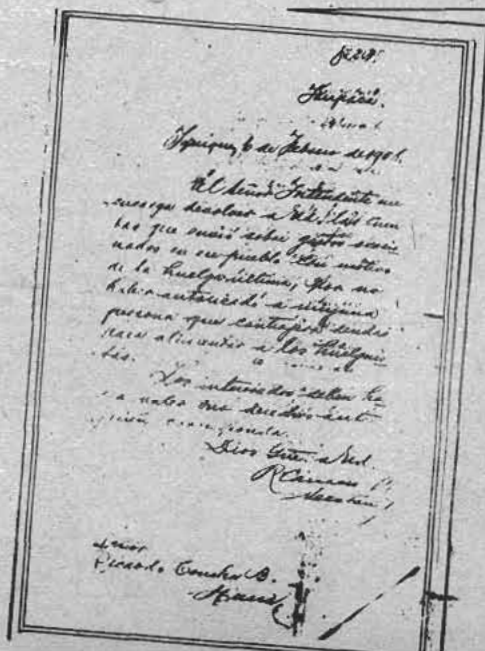 Tarapacá.
Iquique, 6 de Febrero de 1908.
El Señor Intendente me
encarga devolver a Ud. las cuen
tas que envió sobre gastos ocasio
nados en ese pueblo con motivo
de la huelga última, por no
haber autorizado a ninguna
persona que contrajera deudas
para alimentar a los huelguis
tas.
Los interesados deben ha
cer valer sus derechos ant
quien corresponda.
Dios gue. a Ud.
Secretario
Señor
Ricardo Concha B.
Huara